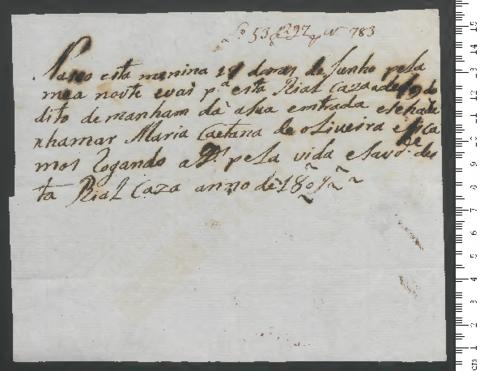 Lo 53 f 297 No 783
Naseo esta menina 18 doras de Junho pela
mea noite e vai pa esta Rial Caza a de 19 do
dito de manham dá a sua emtrada e se hade
xhamar Maria Caetana de oLiveira e fica
mos Rogando a Ds pela vida e Sau.de des
ta Rial Caza anno de 1807